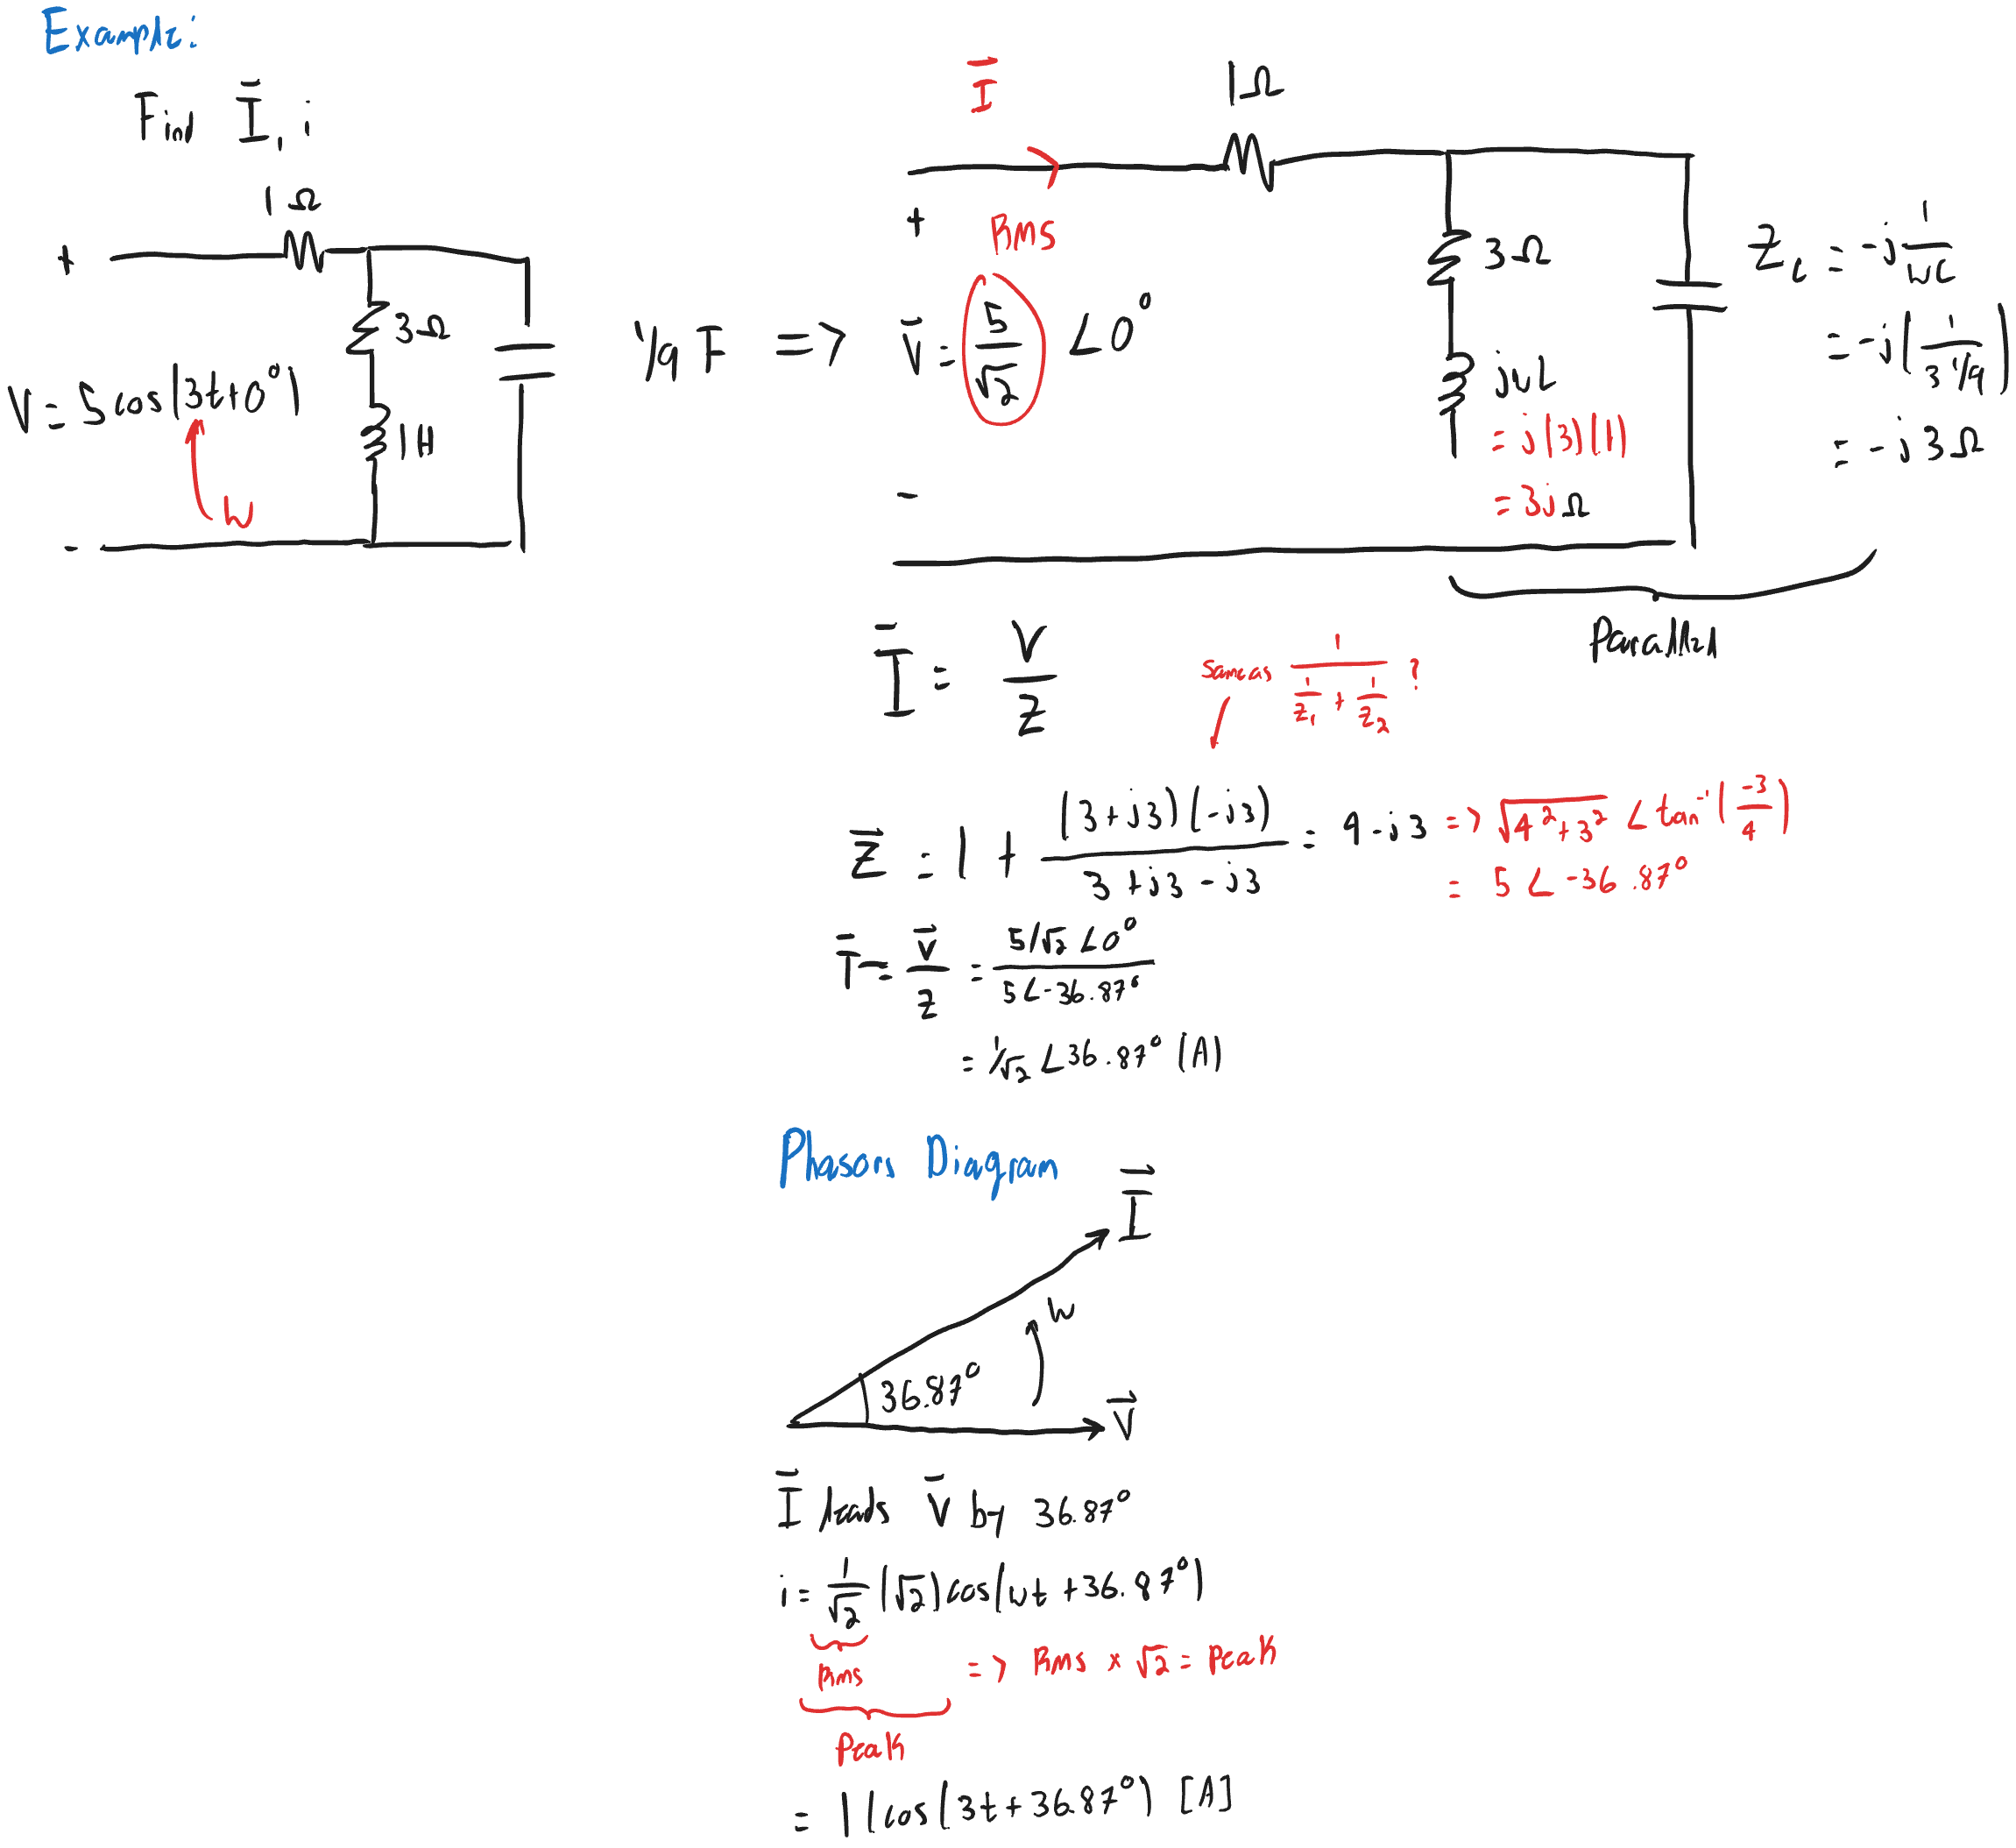 Example:
Find Ī, i
1Ω
+
3Ω
V = 5cos(3t+0°)
1H
1/9 F
w
-
=>
Ī
1Ω
+
RMS
V̄ = 5/√2 ∠0°
-
3Ω
jwL
= j(3)(1)
= 3jΩ
Zc = -j 1/wc
= -j(1/(3 1/9))
= -j3Ω
Parallel
Ī = V/Z
same as 1/(1/Z₁ + 1/Z₂) ?
Z̄ = 1 + (3+j3)(-j3)/(3+j3-j3) = 4-j3 => √(4²+3²) ∠tan⁻¹(-3/4)
= 5∠-36.87°
Ī = V̄/Z = 5/√2 ∠0° / 5∠-36.87°
= 1/√2 ∠36.87° (A)
Phasors Diagram
I⃗
w
36.87°
V⃗
Ī leads V̄ by 36.87°
i = 1/√2 (√2)cos(wt+36.87°)
RMS => RMS × √2 = Peak
Peak
= 1 (cos(3t+36.87°) [A]